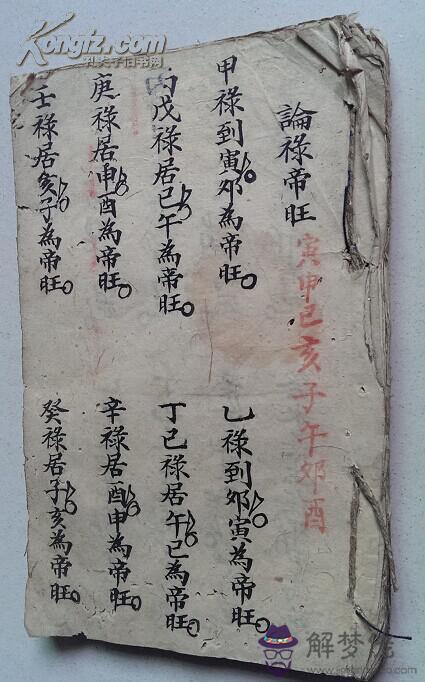 論祿帝旺
寅申巳亥子午卯酉
甲祿到寅卯為帝旺
乙祿到卯寅為帝旺
丙戊祿居巳午為帝旺
丁己祿居午巳為帝旺
庚祿居申酉為帝旺
辛祿居酉申為帝旺
壬祿居亥子為帝旺
癸祿居子亥為帝旺
Kongfz.com
孔夫子旧书网
解梦